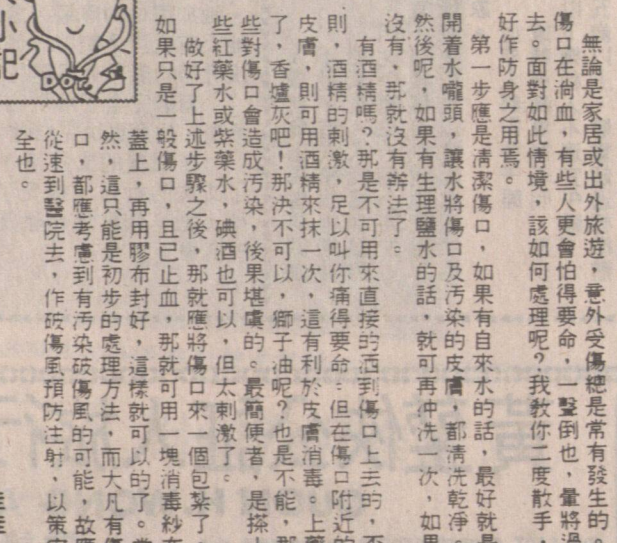 無論是家居或出外旅遊,意外受傷總是常有發生的。
傷口在淌血,有些人更會怕得要命,一驚倒也,暈將過
去。面對如此情境,該如何處理呢?我教你二度散手,
好作防身之用焉。
第一步應是清潔傷口,如果有自來水的話,最好就是
開着水嚨頭,讓水將傷口及污染的皮膚,都清洗乾淨。
然後呢,如果有生理鹽水的話,就可再沖洗一次,如果
沒有,那就沒有辦法了。
有酒精嗎?那是不可用來直接的洒到傷口上去的,否
則,酒精的刺激,足以叫你痛得要命。但在傷口附近的
皮膚,則可用酒精來抹一次,這有利於皮膚消毒。上藥
了,香爐灰吧!那決不可以,獅子油呢?也是不能,那
些對傷口會造成污染,後果堪虞的。最簡便者,是搽
些紅藥水或紫藥水,碘酒也可以,但太刺激了。
做好了上述步驟之後,那就應將傷口來一個包紮了。
如果只是一般傷口,且已止血,那就可用一塊消毒紗布
蓋上,再用膠布封好,這樣就可以的了。當
然,這只能是初步的處理方法,而大凡有傷
口,都應考慮到有污染破傷風的可能,故應
從速到醫院去,作破傷風預防注射,以策安
全也。
小記